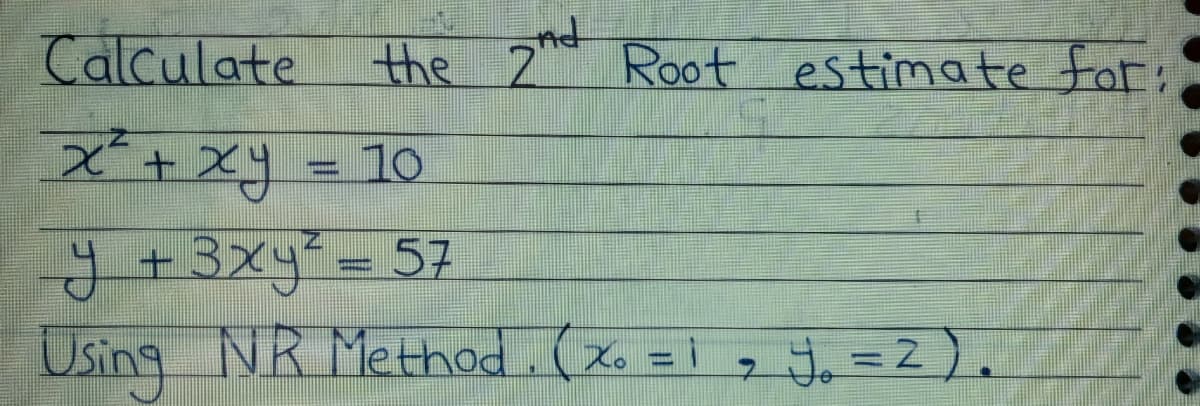 Calculate the 2nd Root estimate for:
x² + xy = 10
y + 3xy² = 57
Using NR Method. (x₀ = 1 , y₀ = 2).